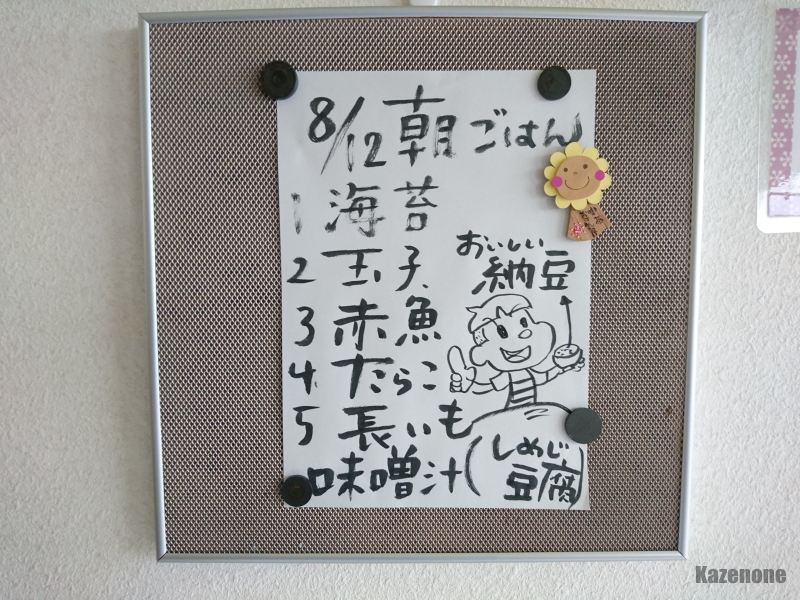 8/12 朝ごはん
1 海苔
2 玉子
3 赤魚
4 たらこ
5 長いも
味噌汁(しめじ
豆腐)
おいしい
納豆
Kazenone